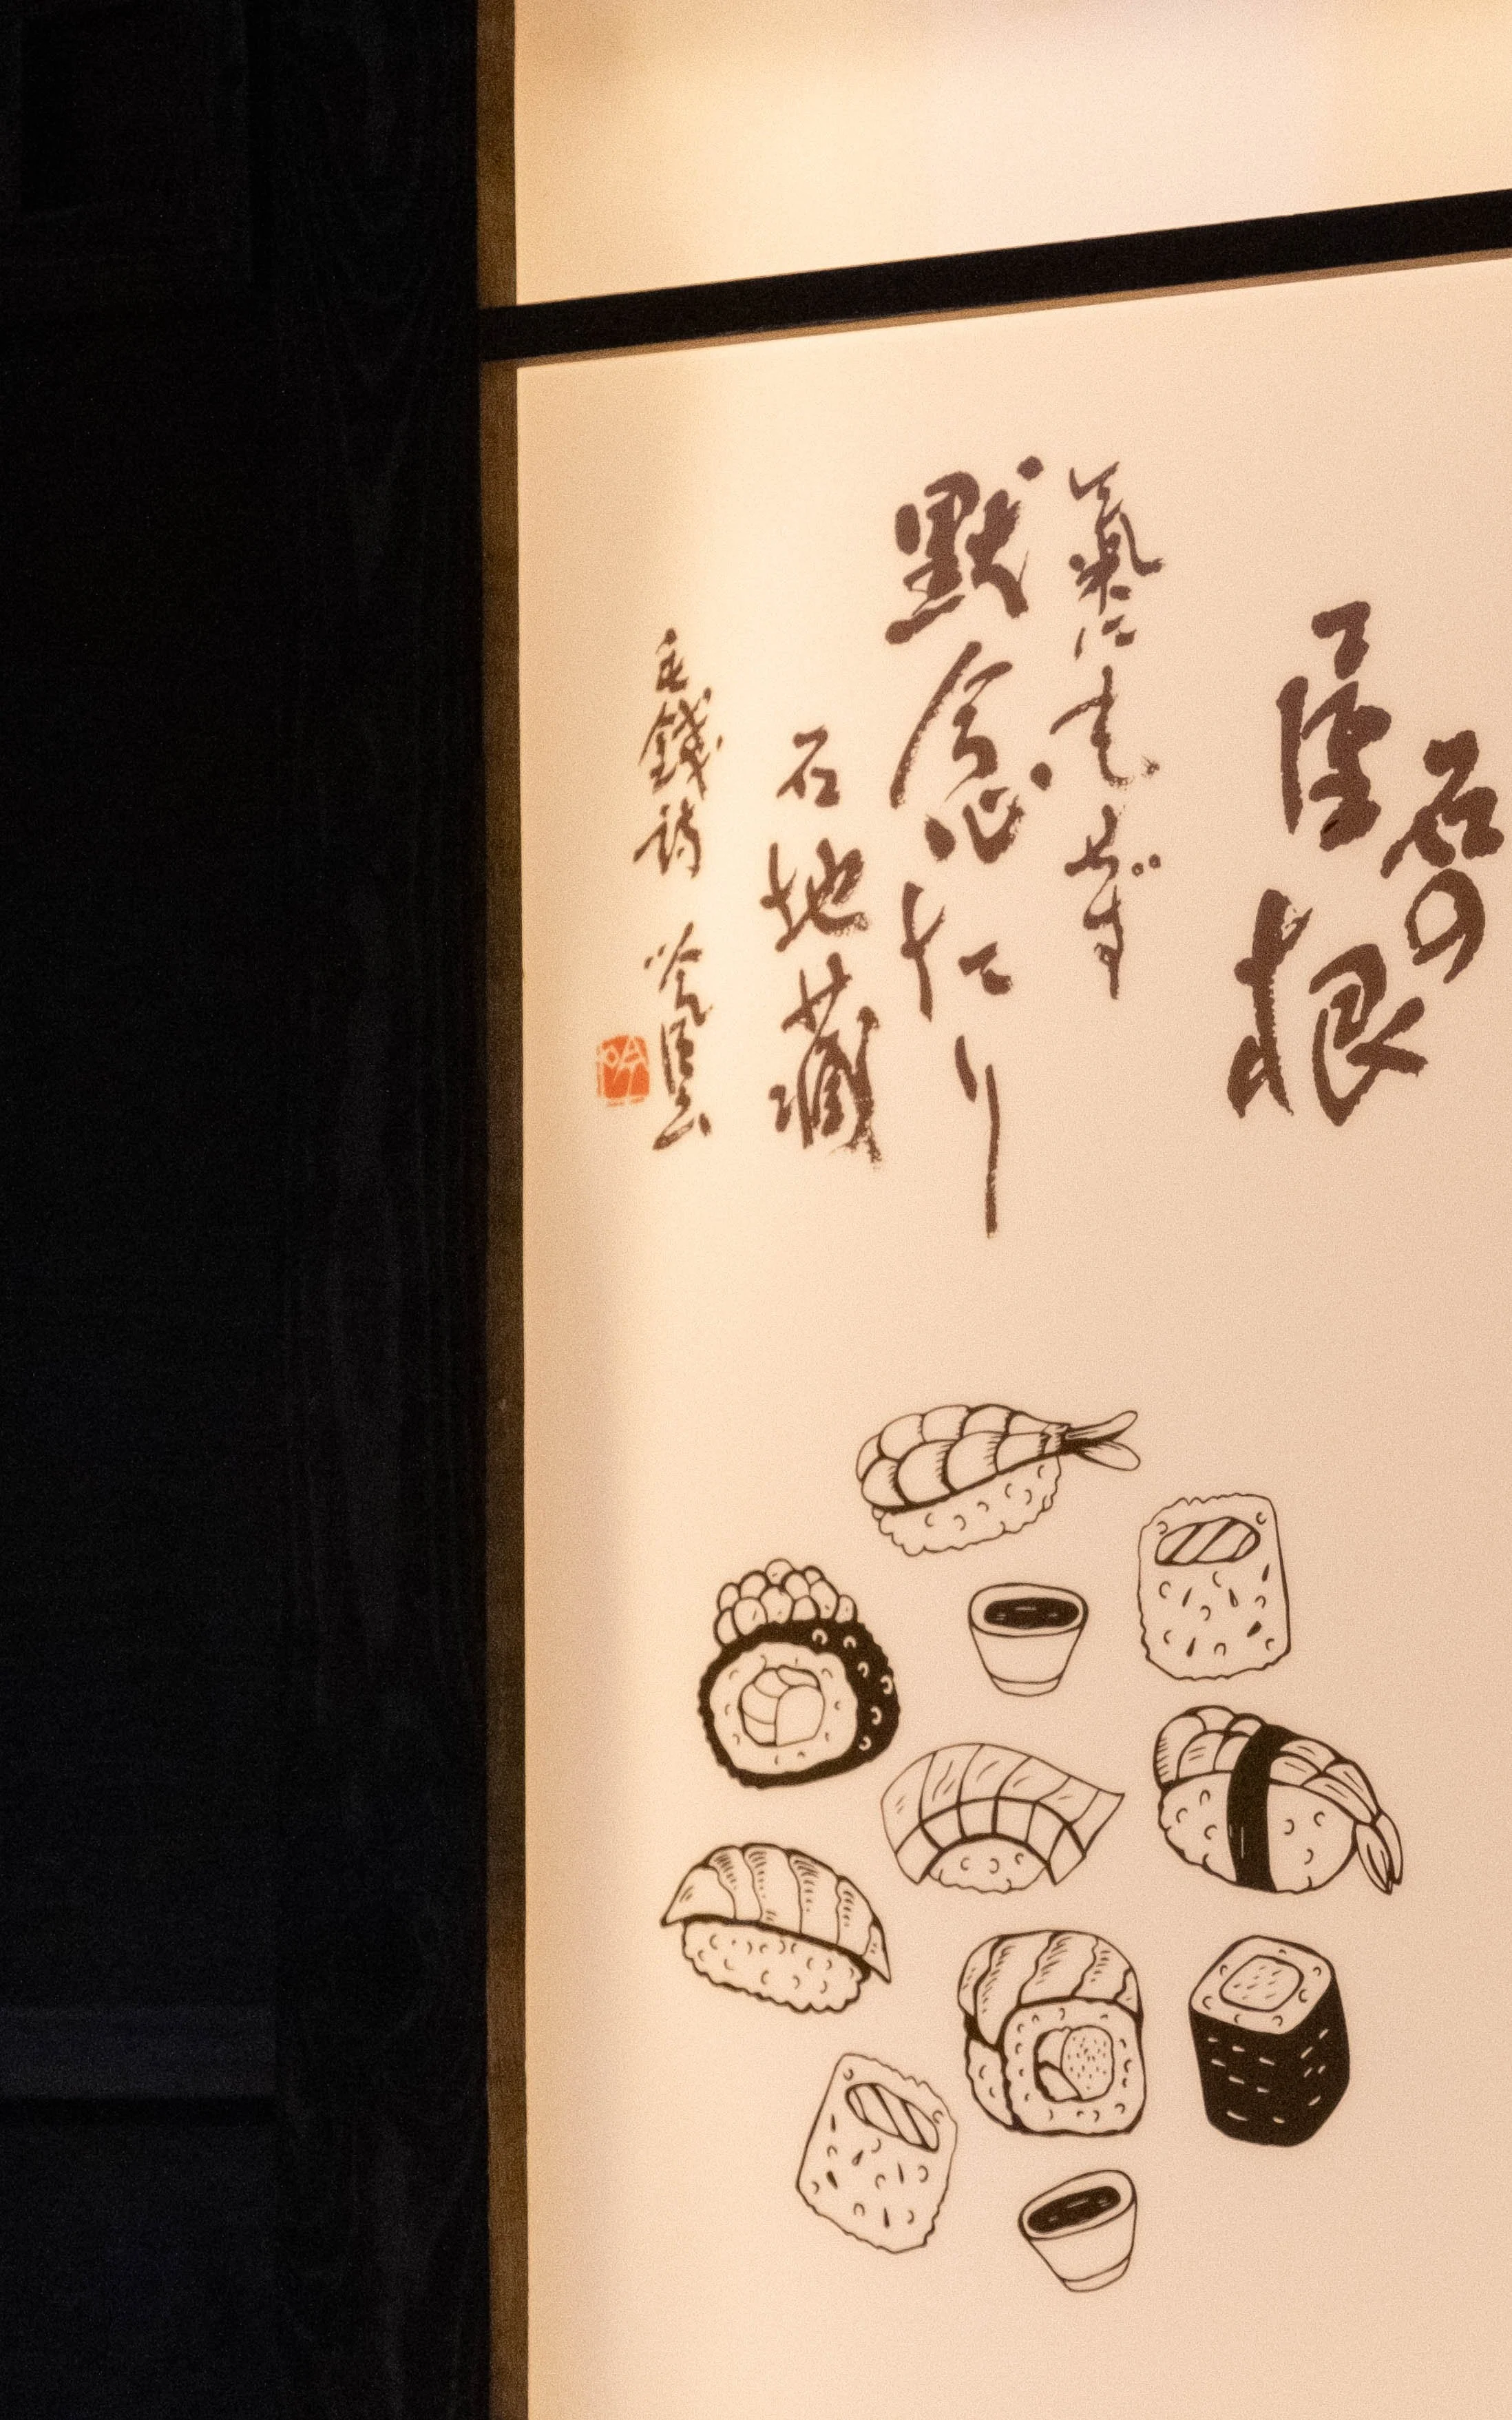 石の
根
氣にもせず
默念たり
石地蔵
毛錢詩